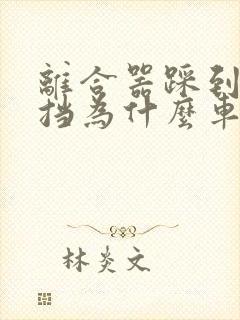 離合器踩到
挡為什麼車
林炎文